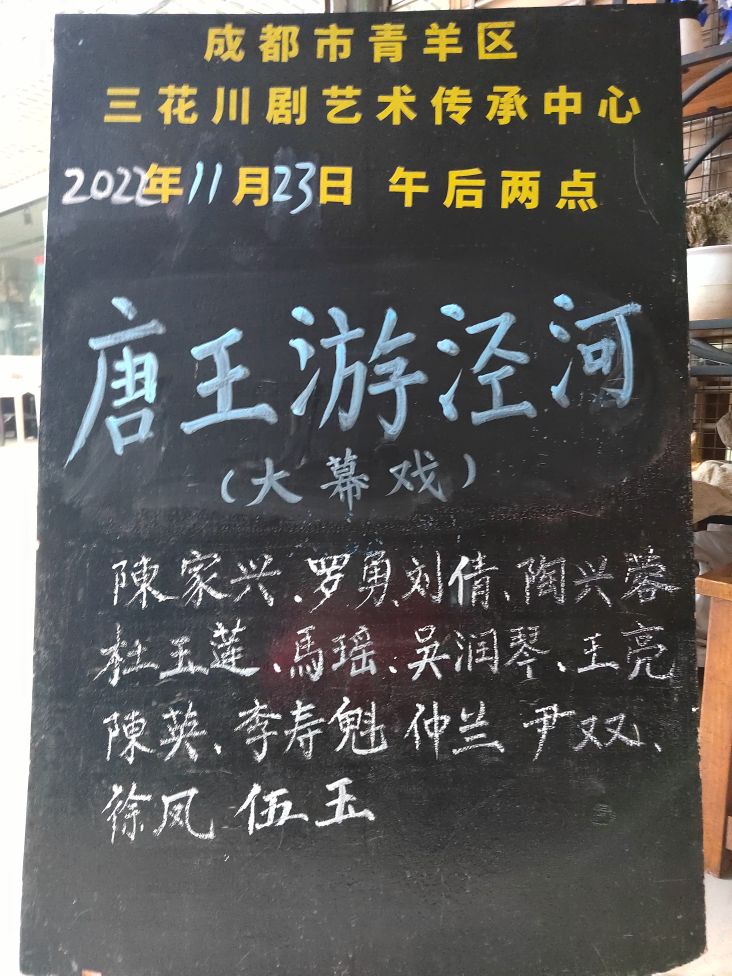 成都市青羊区
三花川剧艺术传承中心
2022年11月23日 午后两点
唐王游泾河
(大幕戏)
陳家兴、罗勇刘倩、陶兴蓉
杜玉莲、馬瑶、吴润琴、王亮
陳英、李寿魁 仲兰 尹双、
徐凤 伍玉